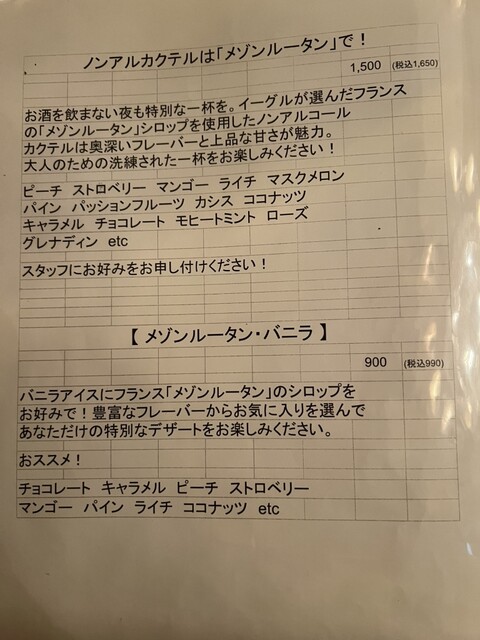 ノンアルカクテルは「メゾンルータン」で！
1,500 (税込1,650)
お酒を飲まない夜も特別な一杯を。イーグルが選んだフランス
の「メゾンルータン」シロップを使用したノンアルコール
カクテルは奥深いフレーバーと上品な甘さが魅力。
大人のための洗練された一杯をお楽しみください！
ピーチ ストロベリー マンゴー ライチ マスクメロン
パイン パッションフルーツ カシス ココナッツ
キャラメル チョコレート モヒートミント ローズ
グレナディン etc
スタッフにお好みをお申し付けください！
【 メゾンルータン・バニラ 】
900 (税込990)
バニラアイスにフランス「メゾンルータン」のシロップを
お好みで！豊富なフレーバーからお気に入りを選んで
あなただけの特別なデザートをお楽しみください。
おススメ！
チョコレート キャラメル ピーチ ストロベリー
マンゴー パイン ライチ ココナッツ etc